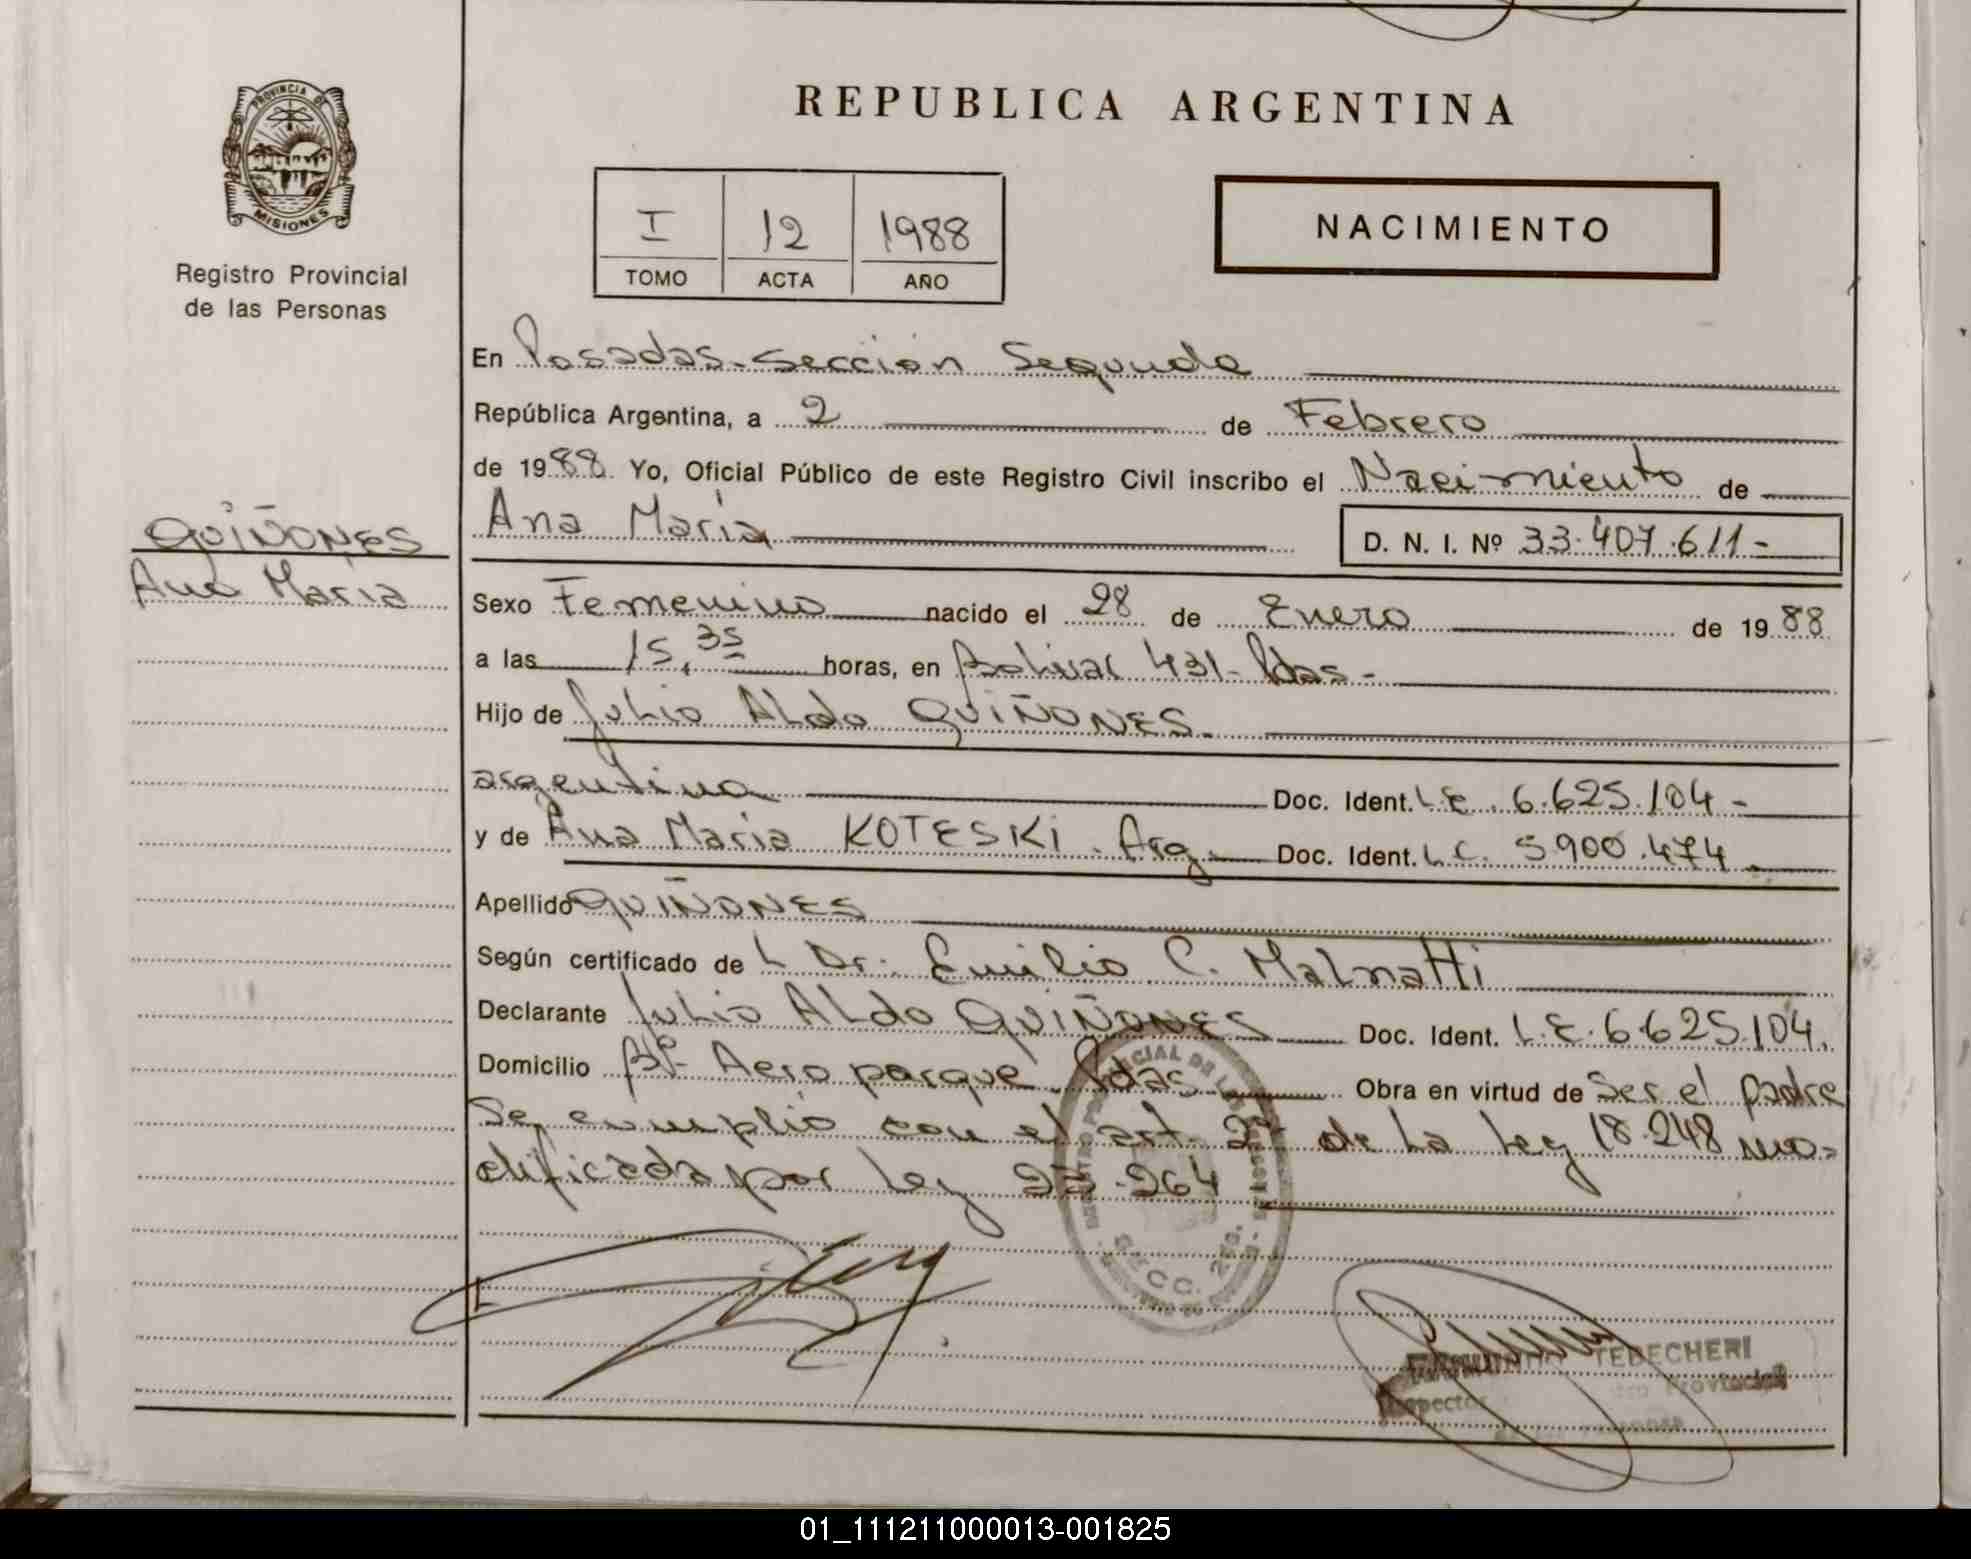 PROVINCIA DE
MISIONES
Registro Provincial
de las Personas
QUIÑONES
Ana María
REPUBLICA ARGENTINA
I 12 1988
TOMO ACTA AÑO
NACIMIENTO
En Posadas-Sección Segunda
República Argentina, a 2 de Febrero
de 1988. Yo, Oficial Público de este Registro Civil inscribo el Nacimiento de
Ana María D. N. I. Nº 33.407.611-
Sexo Femenino nacido el 28 de Enero de 1988
a las 15,35 horas, en Bolivar 431-Pdas-
Hijo de Julio Aldo QUIÑONES.
argentina Doc. Ident. L.E. 6.625.104-
y de Ana Maria KOTESKi. Arg. Doc. Ident. L.C. 5.900.474
Apellido QUIÑONES
Según certificado de L Dr. Emilio C. Malnatti
Declarante Julio Aldo QUIÑONES Doc. Ident. L.E. 6.625.104.
Domicilio Bº Aeroparque. Pdas Obra en virtud de Ser el padre
Se cumplio con el art. 2º de la Ley 18.248 mo-
dificada por Ley 23.264
TEDECHERI
Provincial
01_111211000013-001825